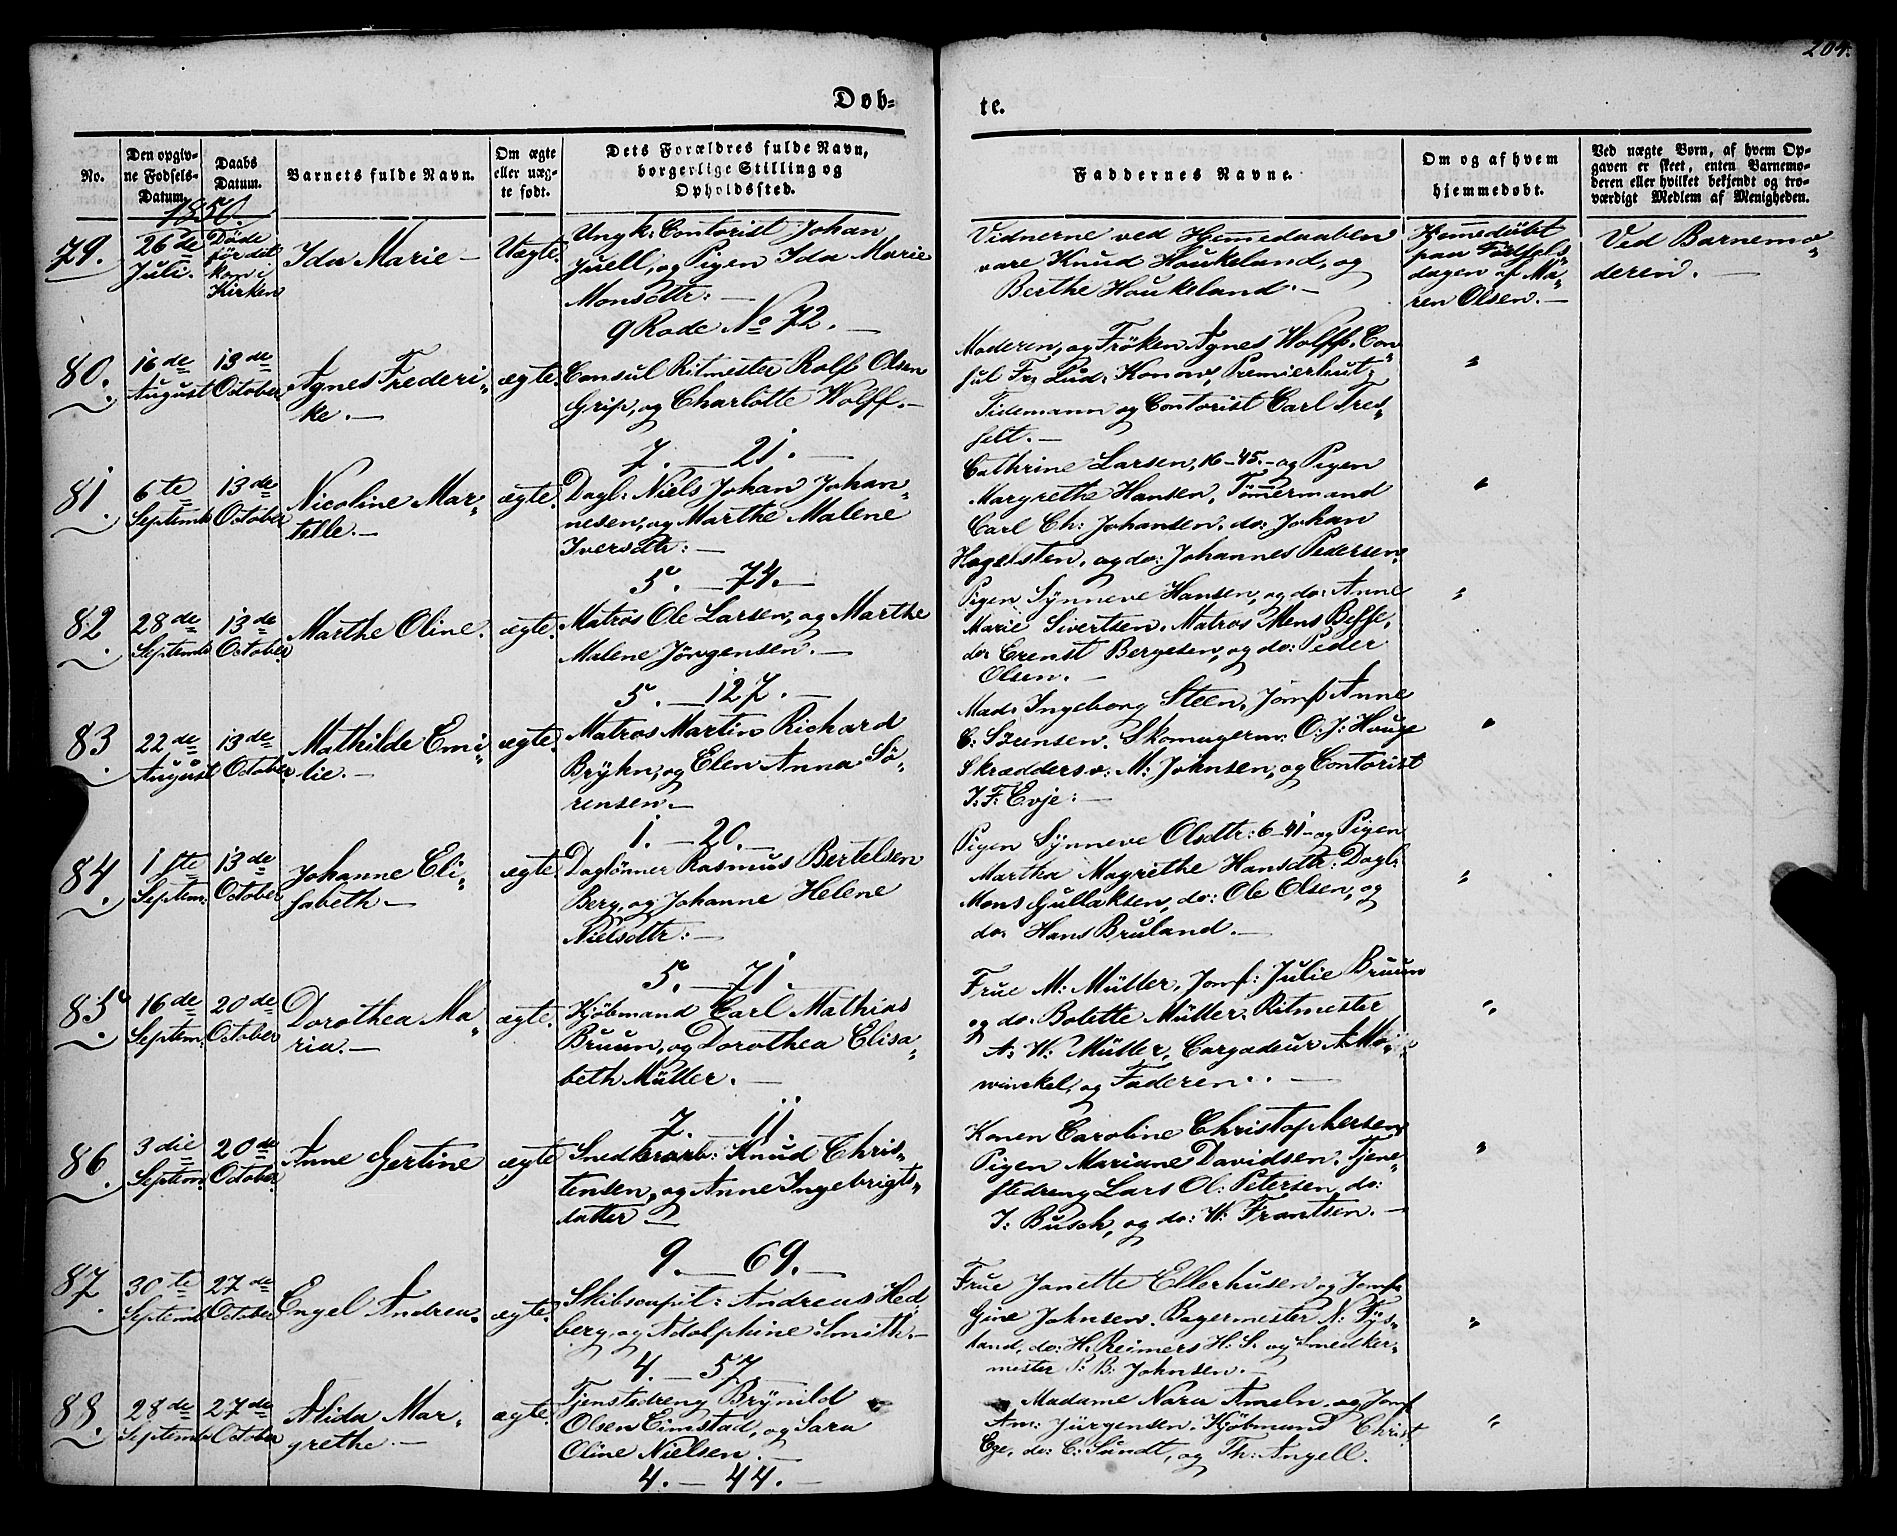 204.
Døb-
te.
No.
Den opgiv-
ne Fødsels-
Datum.
Daabs
Datum.
Barnets fulde Navn.
Om ægte
eller uæg-
te født.
Dets Forældres fulde Navn,
borgerlige Stilling og
Opholdssted.
Faddernes Navne.
Om og af hvem
hjemmedøbt.
Ved uægte Børn, af hvem Op-
gaven er skeet, enten Barnemo-
deren eller hvilket bekjendt og tro-
værdigt Medlem af Menigheden.
1850.
79.
26de
Juli.
Døde
før det
kom i
Kirken
Ida Marie
Uægte.
Ungk: Contorist Johan
Juell, og Pigen Ida Marie
Monsdtr:
9 Rode No 72.
Vidnerne ved Hjemmedaaben
vare Knud Houkeland, og
Berthe Houkeland.
Hjemedøbt
paa Fødsels
dagen af Ma-
ren Olsen.
Ved Barnemo-
deren.
80.
16de
August
13de
October
Agnes Frederi-
ke.
ægte.
Consul Ritmester Rolf Olsen
Grip, og Charlotte Wolff.
7. 21.
Moderen, og Frøken Agnes Wolff. Con-
sul Fr. Lud: Konow, Premierlieut:
Tidemann og Contorist Carl Tres-
selt.
"
81.
6te
Septemb
13de
October
Nicoline Mar-
telle.
ægte.
Dagl: Niels Johan Johan-
nesen, og Marthe Malene
Iversdtr:
5. 74.
Cathrine Larsen, 16-45. og Pigen
Margrethe Hansen, Tømmermand
Carl Ch: Johansen. do: Johan
Hagelsten. og do: Johannes Pedersen.
"
82
28de
Septemb
13de
October
Marthe Oline.
ægte.
Matros Ole Larsen, og Marthe
Malene Jørgensen.
5. 127.
Pigen Synneve Hansen, og do: Anne
Marie Sivertsen. Matros Mens
do: Bergesen, og do: Peder
Olsen.
"
83
22de
August
13de
October
Mathilde Emi-
lie.
ægte.
Matros Martin Richard
Bryhn, og Elen Anna Sø-
rensen.
1. 20.
Mad: Ingeborg Steen, Jomf Anne
C: Sørensen. Skomagerm: O. J: Houge
Skræddersv: M: Johnsen, og Contorist
J. F: Evje:
"
84.
1ste
Septem:
13de
October
Johanne Eli-
sabeth
ægte.
Daglønner Rasmus Bertelsen
Berg, og Johanne Helene
Nielsdtr:
5. 71.
Pigen Synneve Olsdtr: 6-41- og Pigen
Martha Magrethe Hansdtr: Dagl:
Mons Gullaksen, do: Ole Olsen, og
do: Hans Bruland.
"
85.
16de
Septem:
20de
October
Dorothea Ma-
ria.
ægte.
Kjøbmand Carl Mathias
Bruun, og Dorothea Elisa-
beth Müller.
7. 11.
Frue M: Müller, Jomf: Julie Bruun
og do: Bolette Müller. Ritmester
A: W: Müller, Cargadeur A.
winckel, og Faderen.
"
86.
3die
Septem.
20de
October
Anne Gertine
ægte
Snedkerarb: Knud Chris-
tensen, og Anne Ingebrigts-
datter
9. 69.
Konen Caroline Christophersen,
Pigen Mariane Davidsen. Tjene-
stedreng Lars Ol: Petersen, do:
J: Busch, og do: W: Frantsen.
"
87.
30te
Septemb
27de
October
Engel Andrea.
ægte.
Skibscapit: Andreas Hed-
berg, og Adolphine Smith.
4. 57.
Frue Janette Ellerhusen og Jomf:
Gine Johnsen. Bagermester N:
land, do: H. Reimers H: S. og Smedker-
mester P: B: Johnsen.
"
88.
28de
Septemb
27de
October
Alida Mar-
grethe
ægte.
Tjenstedreng Brynild
Olsen Eimstad, og Sara
Oline Nielsen.
4. 44.
Madame Nara Ameln. og Jomf
Am: Jürgensen. Kjøbmand Christ
Ege, do: C: Sundt, og Th: Angell.
"